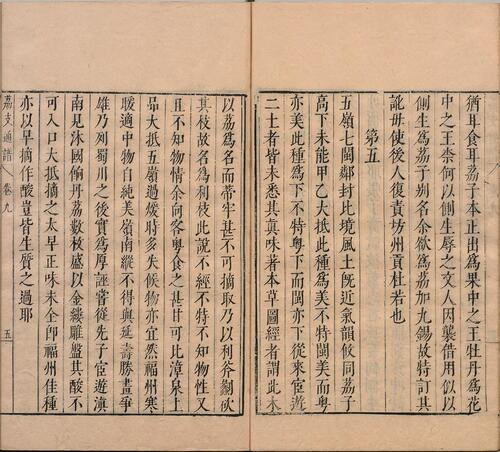 猶耳食耳荔子本正出爲果中之王牡丹爲花
中之王柰何以側生辱之文人因襲借用似以
側生爲荔子别名余欲爲荔加九錫故特訂其
訛毋使後人復責坊州貢杜若也
第五
五嶺七閩鄰封比境風土旣近氣韻攸同荔子
高下未能甲乙大抵此種爲美不特閩美而粤
亦美此種爲下不特粤下而閩亦下從來宦遊
二土者皆未悉其眞味著本草圖經者謂此木
以荔爲名而蒂牢甚不可摘取乃以利斧劙斫
其枝故名爲利枝此說不經不特不知物性又
且不知物情余向客粤食之甚甘可比漳泉上
品大抵五嶺過煖時多失候物亦宜然福州寒
暖適中物自純美嶺南縱不得與延壽勝畫爭
雄乃列蜀川之後實爲厚誣嘗從先子宦遊滇
南見沐國偷丹荔數枝盛以金縷雕盤其酸不
可入口大抵摘之太早正味未全卽福州佳種
亦以早摘作酸豈皆生質之過耶
荔支通譜
卷九
五